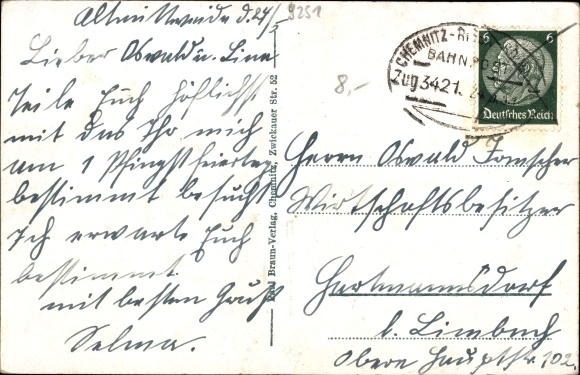 Altmittweida d. 24/5
9251
Lieber Oswald u. Lina
Teile Euch höflichst
mit das Ihr mich
am 1 Pfingstfeiertag
bestimmt besucht
Ich erwarte Euch
bestimmt
mit besten Gruß
Selma.
Paul Braun-Verlag, Chemnitz, Zwickauer Str. 52
8,-
CHEMNITZ-RIESA
BAHNPOST
Zug 3421
6 6
Deutsches Reich
Herrn Oswald
Wirtschaftsbesitzer
Hartmannsdorf
b. Limbach
Obere Hauptstr. 102.